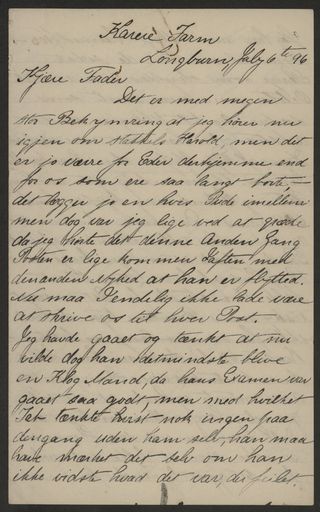 Karere Farm
Longburn, July 6te 96
Kjære Fader
Det er med megen
stor Bekymring at jeg hører nu
igjen om stakkels Harold, men det
er jo værre for Eder derhjemme end
for os som ere saa langt borte,—
det lægger jo en hvis Pude imellem
men dog var jeg lige ved at græde
da jeg hørte det denne Anden Gang
Posten er lige kommen Iaften med
den anden Nyhed at han er flyttet.
Nu maa I endelig ikke lade være
at skrive os til hver Post.
Jeg havde gaaet og tænkt at nu
vilde dog han idetmindste blive
en Klog Mand, da hans Examen var
gaaet saa godt, men mod hvilket
Tab tænkte hvist nok ingen paa
dengang uden ham selv, han maa
have mærket det selv om han
ikke vidste hvad det var, der feilet.